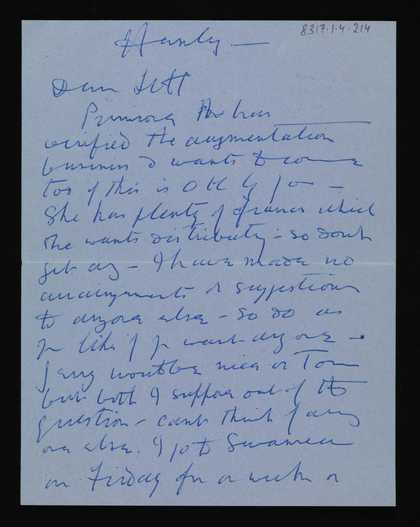 8317.1.4.214
Hanly —
Dear
Primrose has
verified the augmentation
business & wants to come
too if this is O K by you —
She has plenty of drawers which
she wants distributing - so don't
get any - I have made no
arrangements or suggestions
to anyone else - So do as
you like if you want anyone -
Jerry would be nice or Tom
but both I suppose out of the
question - can't think of any
one else. I go to Swansea
on Friday for a week or